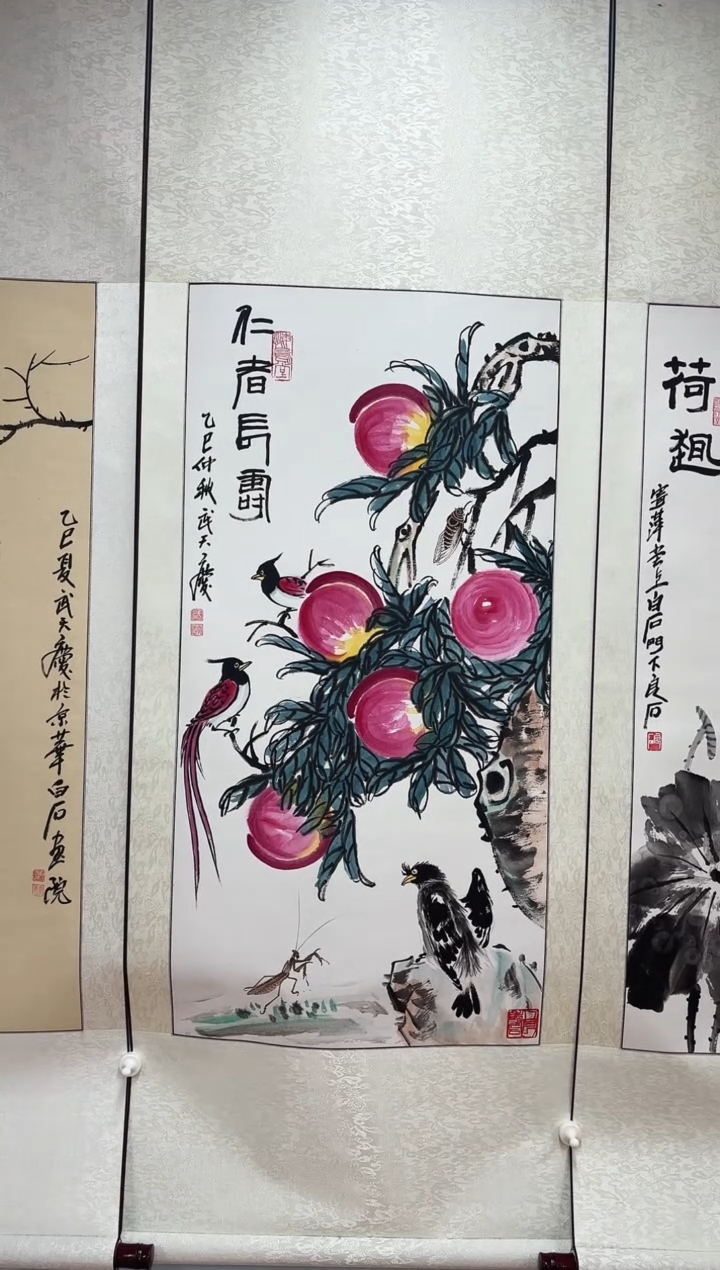 仁者長壽
乙巳仲秋武天慶
乙巳夏武天慶於京華白石畫院
荷趣
寄萍堂上白石門下良石